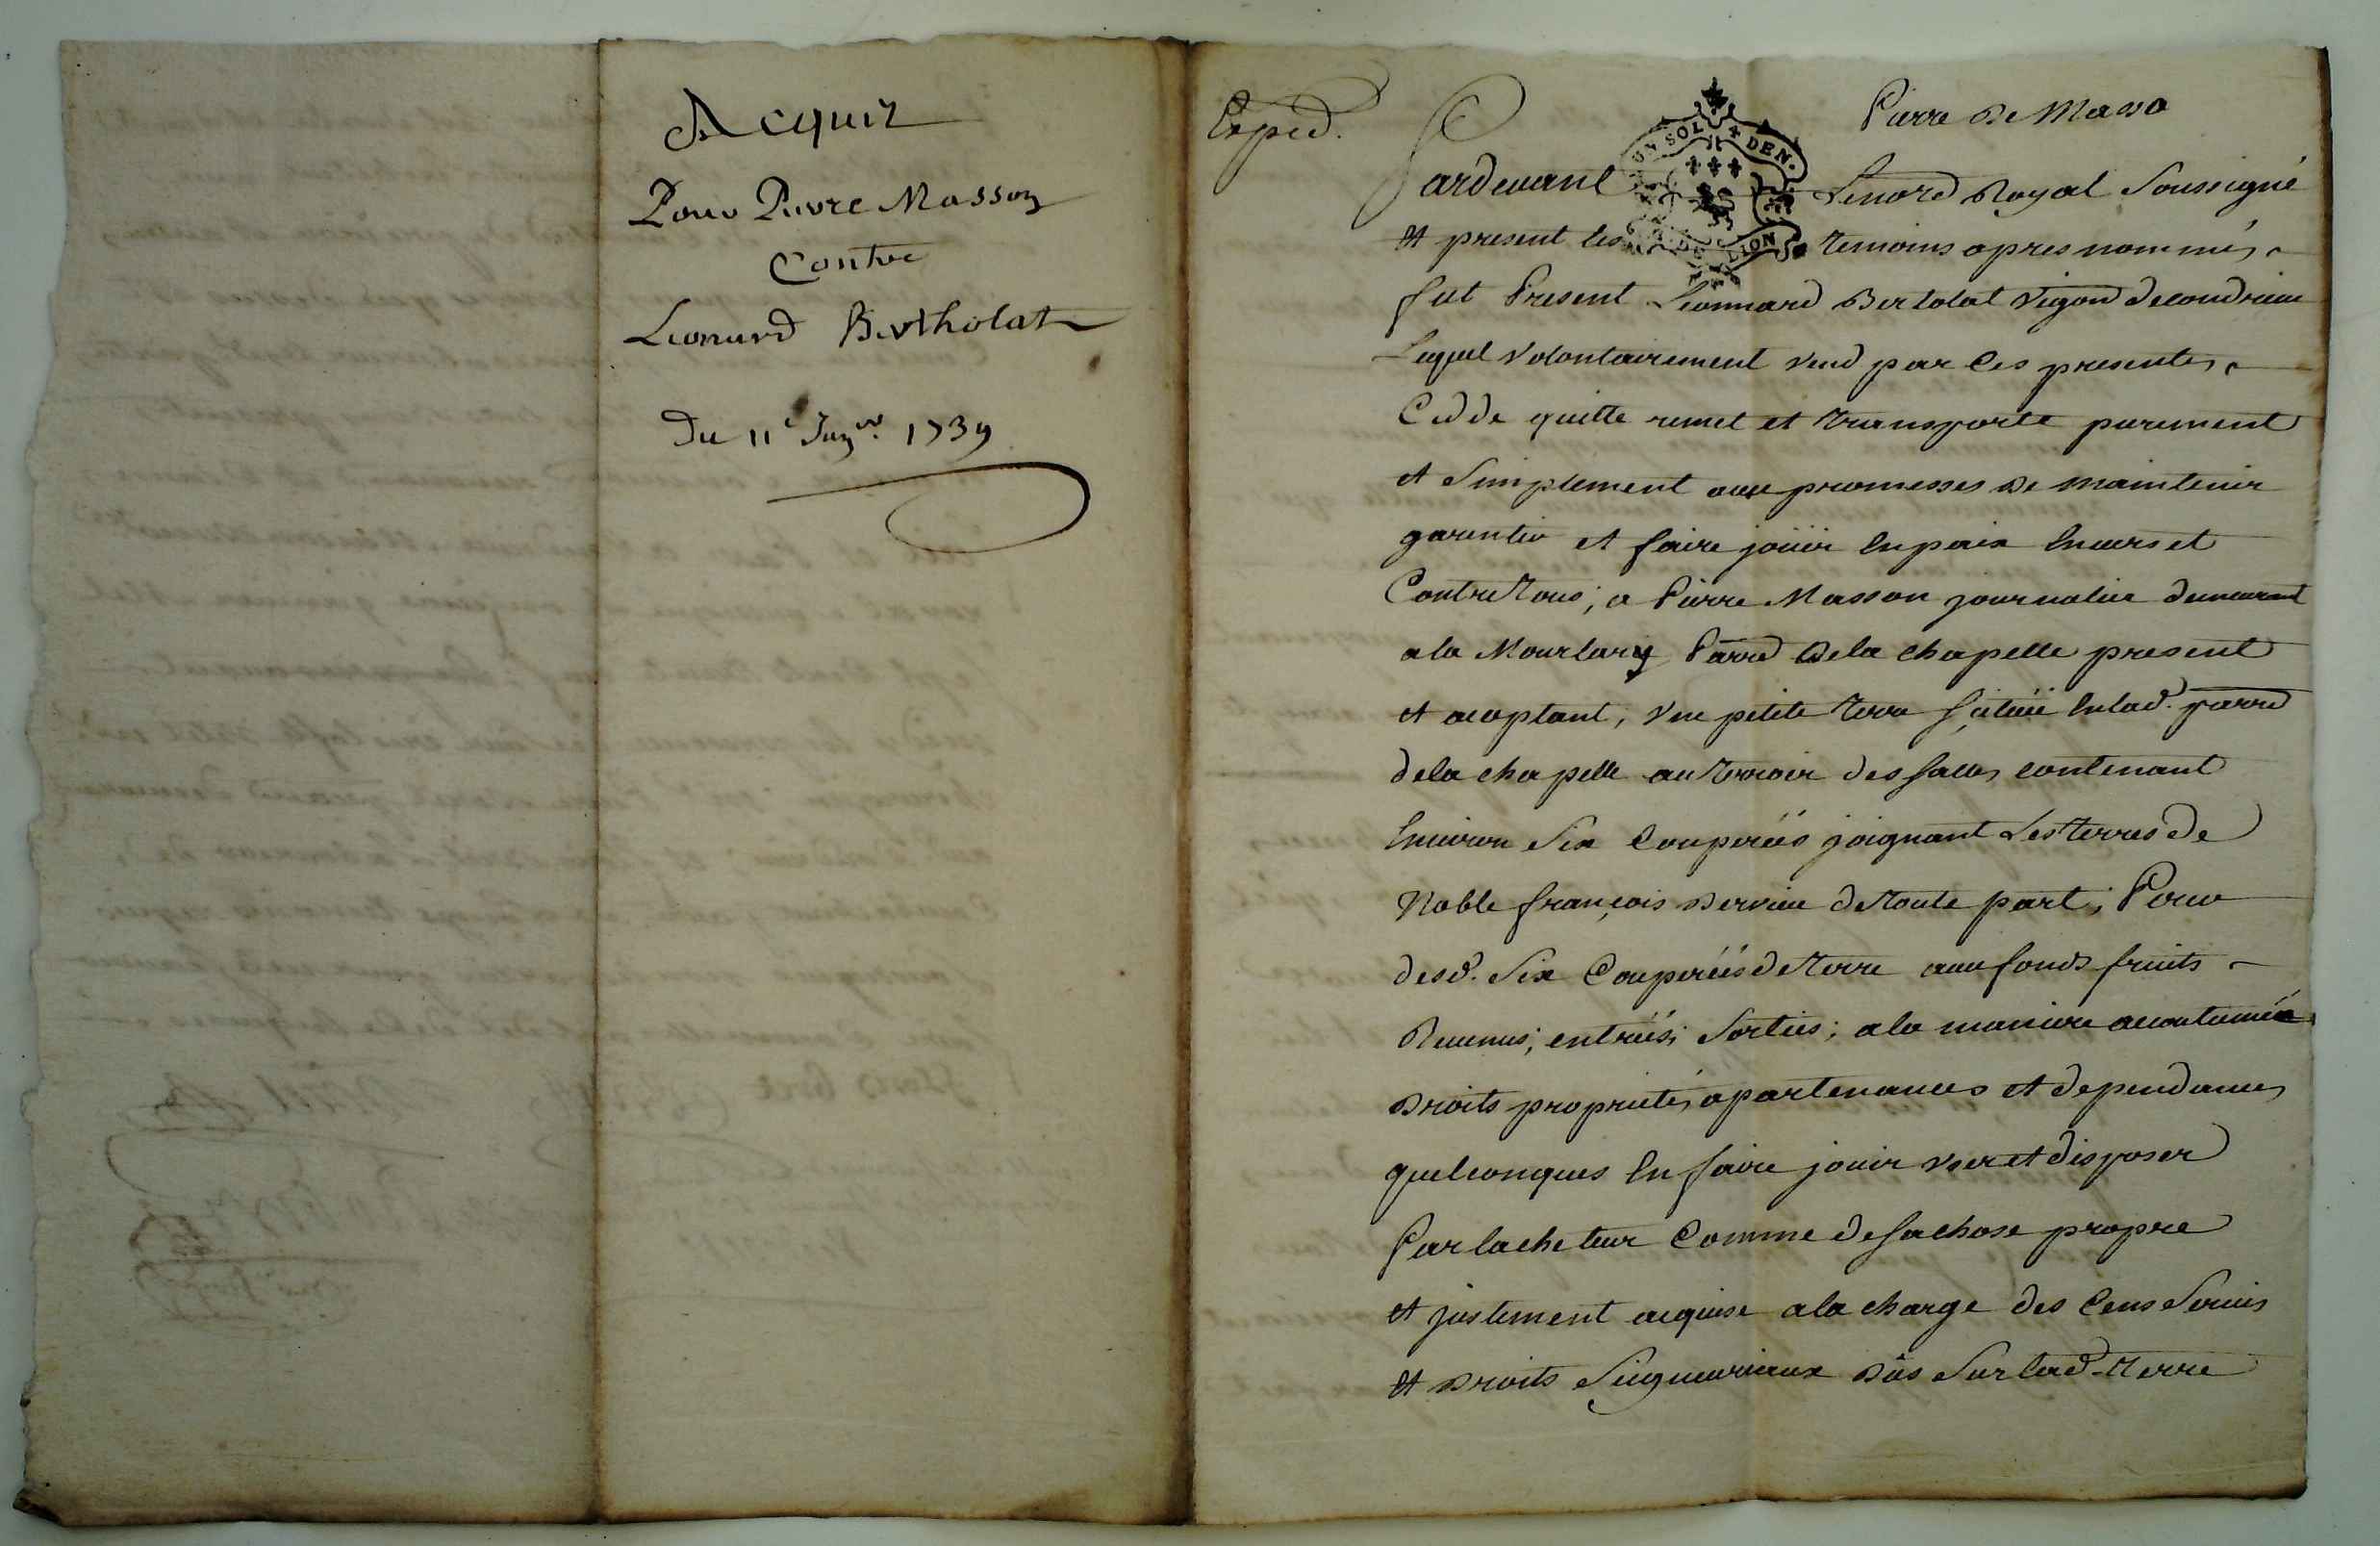 Acquis
Pour Pierre Masson
Contre
Leonard Bertholat
Du 11e Janvr. 1739
Exped.
Pierre De Masso
UN SOL X DEN.
LION
Pardevant Le nore Royal Soussigné
et present les temoins apres nommés
fut Present Leonnard Bertolat Vigon de condrieu
Lequel volontairement vend par Ces presentes
Cedde quitte remet et transporte purement
et Simplement avec promesses de maintenir
garentir et faire joüir en paix Envers et
Contre tous; a Pierre Masson journalier demeurant
a la Mourlary Parre de la chapelle present
et aceptant, Vne petite terre scituée en lad. parre
de la chapelle au terroir des salles contenant
Environ Six Couperées joignant Les terres de
Noble françois Dervieu de toute part; Pour
desd. Six Couperées de terre avec fonds fruits
Revenus; entrées; Sorties; a la maniere acoutumée
Droits proprietés apartenances et dependances
quelconques En faire jouir vser et disposer
Par lacheteur Comme de sa chose propre
et justement acquise a la charge des Cens Servis
et Droits Seigneuriaux Dûs Sur lad. terre